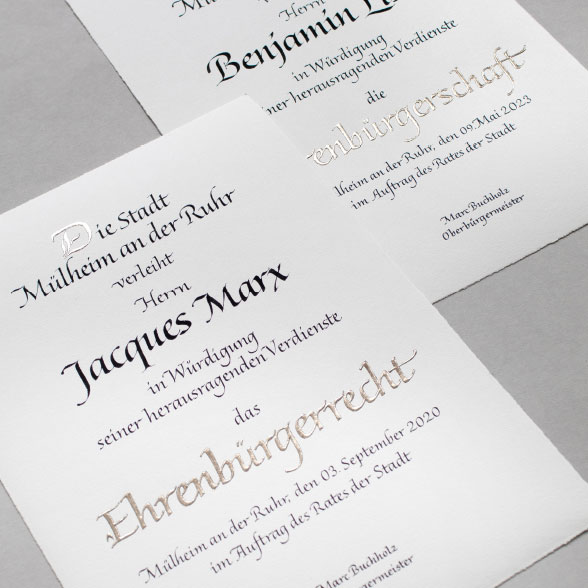 Herrn
Benjamin
in Würdigung
seiner herausragenden Verdienste
die
enbürgerschaft
lheim an der Ruhr, den 09. Mai 2023
im Auftrag des Rates der Stadt
Marc Buchholz
Oberbürgermeister
Die Stadt
Mülheim an der Ruhr
verleiht
Herrn
Jacques Marx
in Würdigung
seiner herausragenden Verdienste
das
Ehrenbürgerrecht
Mülheim an der Ruhr, den 03. September 2020
im Auftrag des Rates der Stadt
Marc Buchholz